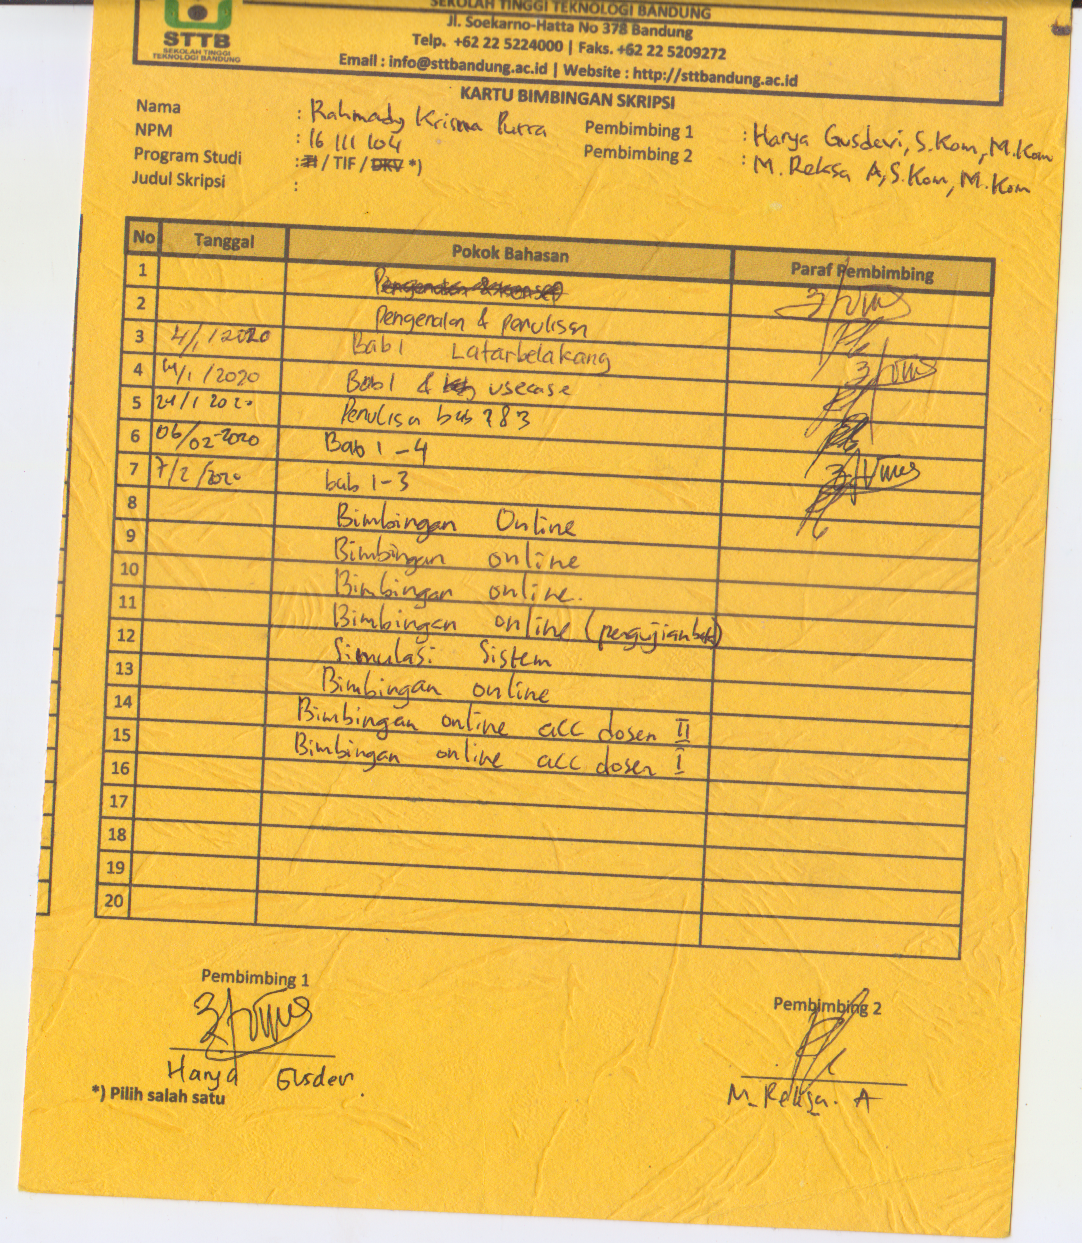 SEKOLAH TINGGI TEKNOLOGI BANDUNG
Jl. Soekarno-Hatta No 378 Bandung
Telp. +62 22 5224000 | Faks. +62 22 5209272
Email : info@sttbandung.ac.id | Website : http://sttbandung.ac.id
STTB
SEKOLAH TINGGI
TEKNOLOGI BANDUNG
KARTU BIMBINGAN SKRIPSI
Nama : Rahmady Krisma Putra
NPM : 16 111 104
Program Studi : TI / TIF / DKV *)
Judul Skripsi :
Pembimbing 1 : Harya Gusdevi, S.Kom, M.Kom
Pembimbing 2 : M. Reksa A, S.Kom, M.Kom
No Tanggal Pokok Bahasan Paraf Pembimbing
1
2 Pengenalan & penulisan
3 4/1 2020 Bab 1 Latarbelakang
4 14/1 /2020 Bab 1 & usecase
5 21/1 2020 Penulisa bab 2 & 3
6 06/02-2020 Bab 1 - 4
7 7/2 /2020 bab 1-3
8 Bimbingan Online
9 Bimbingan online
10 Bimbingan online.
11 Bimbingan online (pengujian
12 Simulasi Sistem
13 Bimbingan online
14 Bimbingan online acc dosen II
15 Bimbingan online acc dosen I
16
17
18
19
20
Pembimbing 1
Harya Gusdevi
Pembimbing 2
M. Reksa. A
*) Pilih salah satu